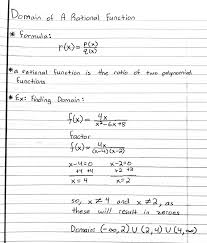 Domain of A Rational Function
* Formula:
r(x) = p(x)/q(x)
* a rational function is the ratio of two polynomial
functions
* Ex: Finding Domain:
f(x) = 4x/x²-6x+8
factor
f(x) = 4x/(x-4)(x-2)
x-4=0 x-2=0
+4 +4 +2 +2
x=4 x=2
so, x ≠ 4 and x ≠ 2, as
these will result in zeroes
Domain (-∞,2) U (2,4) U (4,∞)